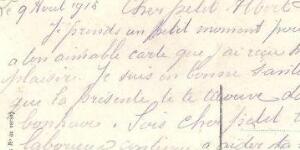 le 9 Avril 1918 Cher petit Albert
Je prends un petit moment pour
a ton aimable carte que j'ai reçu
plaisir. Je suis en bonne santé
que la présente te trouve de
bonheur. Sois cher petit
laboureur continue a aider